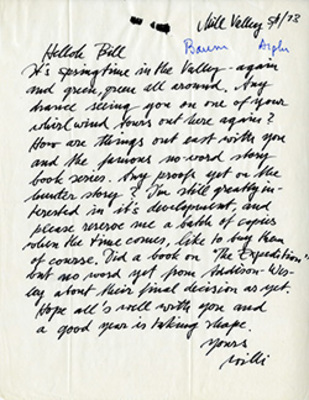 Mill Valley 5/1/73
Baum
Helloh Bill
It's springtime in the Valley - again
and green, green all around. Any
chance seeing you on one of your
whirl wind tours out here again?
How are things out east with you
and the famous no-word story
book series. Any proofs yet on the
hunter story? I'm still greatly in-
terested in it's development, and
please reserve me a batch of copies
when the time comes, like to buy them
of course. Did a book on "The Expedition"
but no word yet from Addison-Wes-
ley about their final decision as yet.
Hope all's well with you and
a good year is taking shape.
Yours
Willi